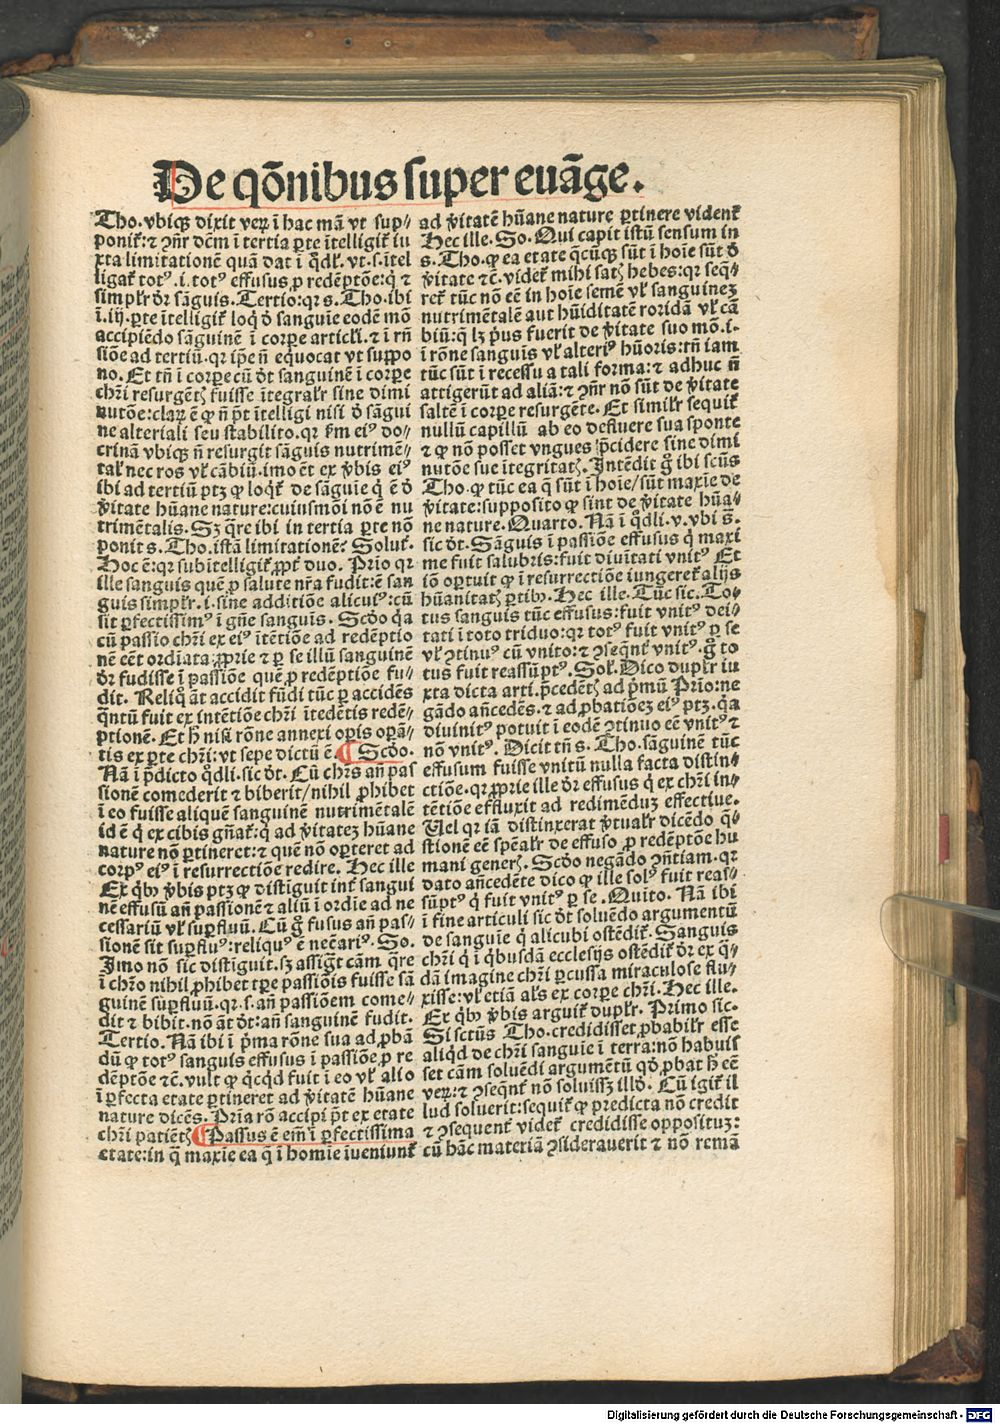 De qōnibus super euāge.
Tho. vbiqꝫ dixit veꝝ ī hac mā vt sup⸗
poniť: ⁊ ꝯn̄r dēm ī tertia ꝑte ītelligiť iu
xta limitationē quā dat ī qͦdł. vt .s. ītel
ligať totꝰ .i. totꝰ effusus ꝓ redēptōe: q̇ ⁊
simplr̄ dr̄ sāguis. Tertio: qr s. Tho. ibi
ī .iij. ꝑte ītelligiť loqͥ đ sanguīe eodē mō
accipiēdo sāguinē ī corpe articłi. ⁊ ī rn̄
siōe ad tertiū. qr ip̄e n̄ equocat vt suppo
no. Et tn̄ ī corpe cū đt sanguinē ī corpe
chr̄i resurgētꝭ fuisse ītegralr̄ sine dimi
nutōe: claꝝ ē ꝙ n̄ pt̄ ītelligi nisi đ sāgui
ne alteriali seu stabilito. qr ẜm eiꝰ do⸗
crinā vbiqꝫ n̄ resurgit sāguis nutrimē⸗
tal̓ nec ros vł cābiū. imo ēt ex v̓bis eiꝰ
ibi ad tertiū ptꝫ ꝙ loqͥť de sāguīe q̇ ē đ
v̓itate hūane nature: cuiusmōi nō ē nu
trimētalis. Sꝫ q̄re ibi in tertia ꝑte nō
ponit s. Tho. istā limitationē? Soluť.
hoc ē: qr subītelligiť ꝓpť duo. Prīo qr
ille sanguis quē ꝓ salute nr̄a fudit: ē san
guis simplr̄ .i. sine additiōe alicuiꝰ: cū
sit ꝑfectissimꝰ ī gn̄e sanguis. Scd̓o q̇a
cū passio chr̄i ex eiꝰ ītētiōe ad redēptio
nē eēt ordīata: ꝓprie ⁊ ꝑ se illū sanguinē
dr̄ fudisse ī passiōe quē ꝓ redēptiōe fu⸗
dit. Reliqͥ āt accidit fūdi tūc ꝑ accidēs
q̄ntū fuit ex intētiōe chr̄i ītedētis redē⸗
ptionē. Et h̄ nisi rōne annexi oꝑis oꝑā⸗
tis ex ꝑte chr̄i: vt sepe dictū ē. ¶ Scd̓o.
Nā ī p̄dicto qͦdli. sic đt. Cū chrs̄ an̄ pas
sionē comederit ⁊ biberit/ nihil ꝓhibet
ī eo fuisse aliquē sanguinē nutrimētalē
id ē q̇ ex cibis gn̄ať: q̇ ad v̓itatē hūane
nature nō ꝑtineret: ⁊ quē nō oꝑteret ad
corpꝰ eiꝰ ī resurrectiōe redire. Hec ille
Ex qͥbꝰ v̓bis ptꝫ ꝙ distīguit inť sangui
nē effusū an̄ passionē ⁊ aliū ī ordīe ad ne
cessariū vł suꝑfluū. Cū g̊ fusus an̄ pas⸗
sionē sit suꝑfluꝰ: reliqͥꝰ ē necēariꝰ. So.
Imo nō sic distīguit. sꝫ assigͣt cām q̄re
ī chr̄o nihil ꝓhibet tꝑe passiōis fuisse sā
guinē suꝑfluū. qr .s. an̄ passiōem come⸗
dit ⁊ bibit. nō āt đt: an̄ sanguinē fudit.
Tertio. Nā ibi ī p̄ma rōne sua ad ꝓbā
dū ꝙ totꝰ sanguis effusus ī passiōe ꝓ re
dēptōe ⁊c̄. vult ꝙ qͥcqͥd fuit ī eo vł alio
ī ꝑfecta etate ꝑtineret ad v̓itatē hūane
nature dicēs. Prīa rō accipi pt̄ ex etate
chr̄i patiētꝭ ¶Passus ē em̄ ī ꝑfectissima
etate: in q̄ maxīe ea q̄ ī homīe īueniunť
ad v̓itatē hūane nature ꝑtinere videnť
Hec ille. So. Qui capit istū sensum in
s. Tho. ꝙ ea etate q̄cūqꝫ sūt ī hoīe sūt đ
v̓itate ⁊c̄. videť mihi satꝭ hebes: qr seqͥ⸗
reť tūc nō eē in hoīe semē vł sanguineꝫ
nutrimētalē aut hūiditatē roridā vł cā
biū: q̇ lꝫ pͥus fuerit de v̓itate suo mō .i.
ī rōne sanguīs vł alteriꝰ hūoris: tn̄ iam
tūc sūt ī recessu a tali forma: ⁊ adhuc n̄
attigerūt ad aliā: ⁊ ꝯn̄r nō sūt de v̓itate
saltē ī corpe resurgēte. Et similr̄ sequiť
nullū capillū ab eo defluere sua sponte
⁊ ꝙ nō posset vngues p̄cidere sine dimi
nutōe sue ītegritatꝭ. Intēdit g̊ ibi scūs
Tho. ꝙ tūc ea q̄ sūt ī hoīe/ sūt maxīe de
v̓itate: supposito ꝙ sint de v̓itate hūa⸗
ne nature. Quarto. Nā ī qͦdli. v. vbi s̄.
sic đt. Sāguis ī passiōe effusus q̇ maxi
me fuit salubris: fuit diuītati vnitꝰ Et
iō oꝑtuit ꝙ ī resurrectiōe iungereť alijs
hūanitatꝭ ꝑtibꝰ. Hec ille. Tūc sic. To⸗
tus sanguis tūc effusus: fuit vnitꝰ dei⸗
tati ī toto triduo: qr totꝰ fuit vnitꝰ ꝑ se
vł ꝯtinuꝰ cū vnito: ⁊ ꝯseqn̄ť vnitꝰ. g̊ to
tus fuit reassūptꝰ. Soł. Dico duplr̄ iu
xta dicta arti. p̄cedētꝭ ad p̄mū Prīo: ne
gādo an̄cedēs. ⁊ ad ꝓbatiōeꝫ eiꝰ ptꝫ. q̇a
diuinitꝰ potuit ī eodē ꝯtinuo eē vnitꝰ ⁊
nō vnitꝰ. Dicit tn̄ s. Tho. sāguinē tūc
effusum fuisse vnitū nulla facta distin⸗
ctiōe. qr ꝓprie ille dr̄ effusus q̇ ex chr̄i in⸗
tētiōe effluxit ad redimēduꝫ effectiue.
Uel qr iā distinxerat v̓tualr̄ dicēdo q̄⸗
stionē eē spēalr̄ de effuso ꝓ redēptōe hu
mani generꝭ. Scd̓o negādo ꝯn̄tiam. qr
dato an̄cedēte dico ꝙ ille solꝰ fuit reas⸗
sūptꝰ q̇ fuit vnitꝰ ꝑ se. Quīto. Nā ibi
ī fine articuli sic đt soluēdo argumentū
de sanguīe q̇ alicubi ostēdiť. Sanguis
chr̄i q̇ ī qͥbusdā ecclesijs ostēdiť dr̄ ex q̄⸗
dā imagine chr̄i ꝑcussa miraculose flu⸗
xisse: vł etiā als̄ ex corpe chr̄i. Hec ille.
Ex qͥbꝰ v̓bis arguiť duplr̄. Primo sic.
Si sctūs Tho. credidisset ꝓbabilr̄ esse
aliqͥd de chr̄i sanguīe ī terra: nō habuis
set cām soluēdi argumētū qd̓ ꝓbat h̄ eē
veꝝ: ⁊ ꝯseqn̄ť nō soluissꝫ illd̓. Cū igiť il
lud soluerit: sequiť ꝙ predicta nō credit
⁊ ꝯsequenť videť credidisse oppositum:
cū hāc materiā ꝯsiderauerit ⁊ nō remā
Digitalisierung gefördert durch die Deutsche Forschungsgemeinschaft - DFG